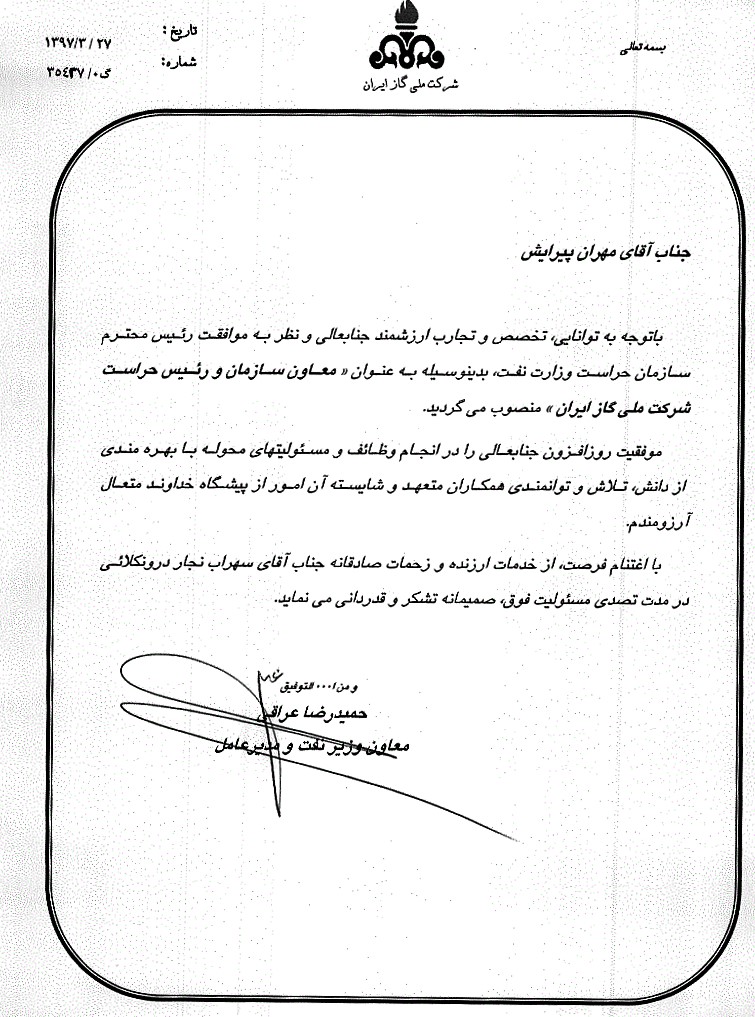 بسمه تعالی
شرکت ملی گاز ایران
تاریخ : ۱۳۹۷/۳/۲۷
شماره: گ۰/
جناب آقای مهران پیرایش
باتوجه به توانایی، تخصص و تجارب ارزشمند جنابعالی و نظر به موافقت رئیس محترم
سازمان حراست وزارت نفت، بدینوسیله به عنوان « معاون سازمان و رئیس حراست
شرکت ملی گاز ایران » منصوب می گردید.
موفقیت روزافزون جنابعالی را در انجام وظائف و مسئولیتهای محوله با بهره مندی
از دانش، تلاش و توانمندی همکاران متعهد و شایسته آن امور از پیشگاه خداوند متعال
آرزومندم.
با اغتنام فرصت، از خدمات ارزنده و زحمات صادقانه جناب آقای سهراب نجار درونکلائی
در مدت تصدی مسئولیت فوق، صمیمانه تشکر و قدردانی می نماید.
و من ا... التوفیق
حمیدرضا عراقی
معاون وزیر نفت و مدیرعامل